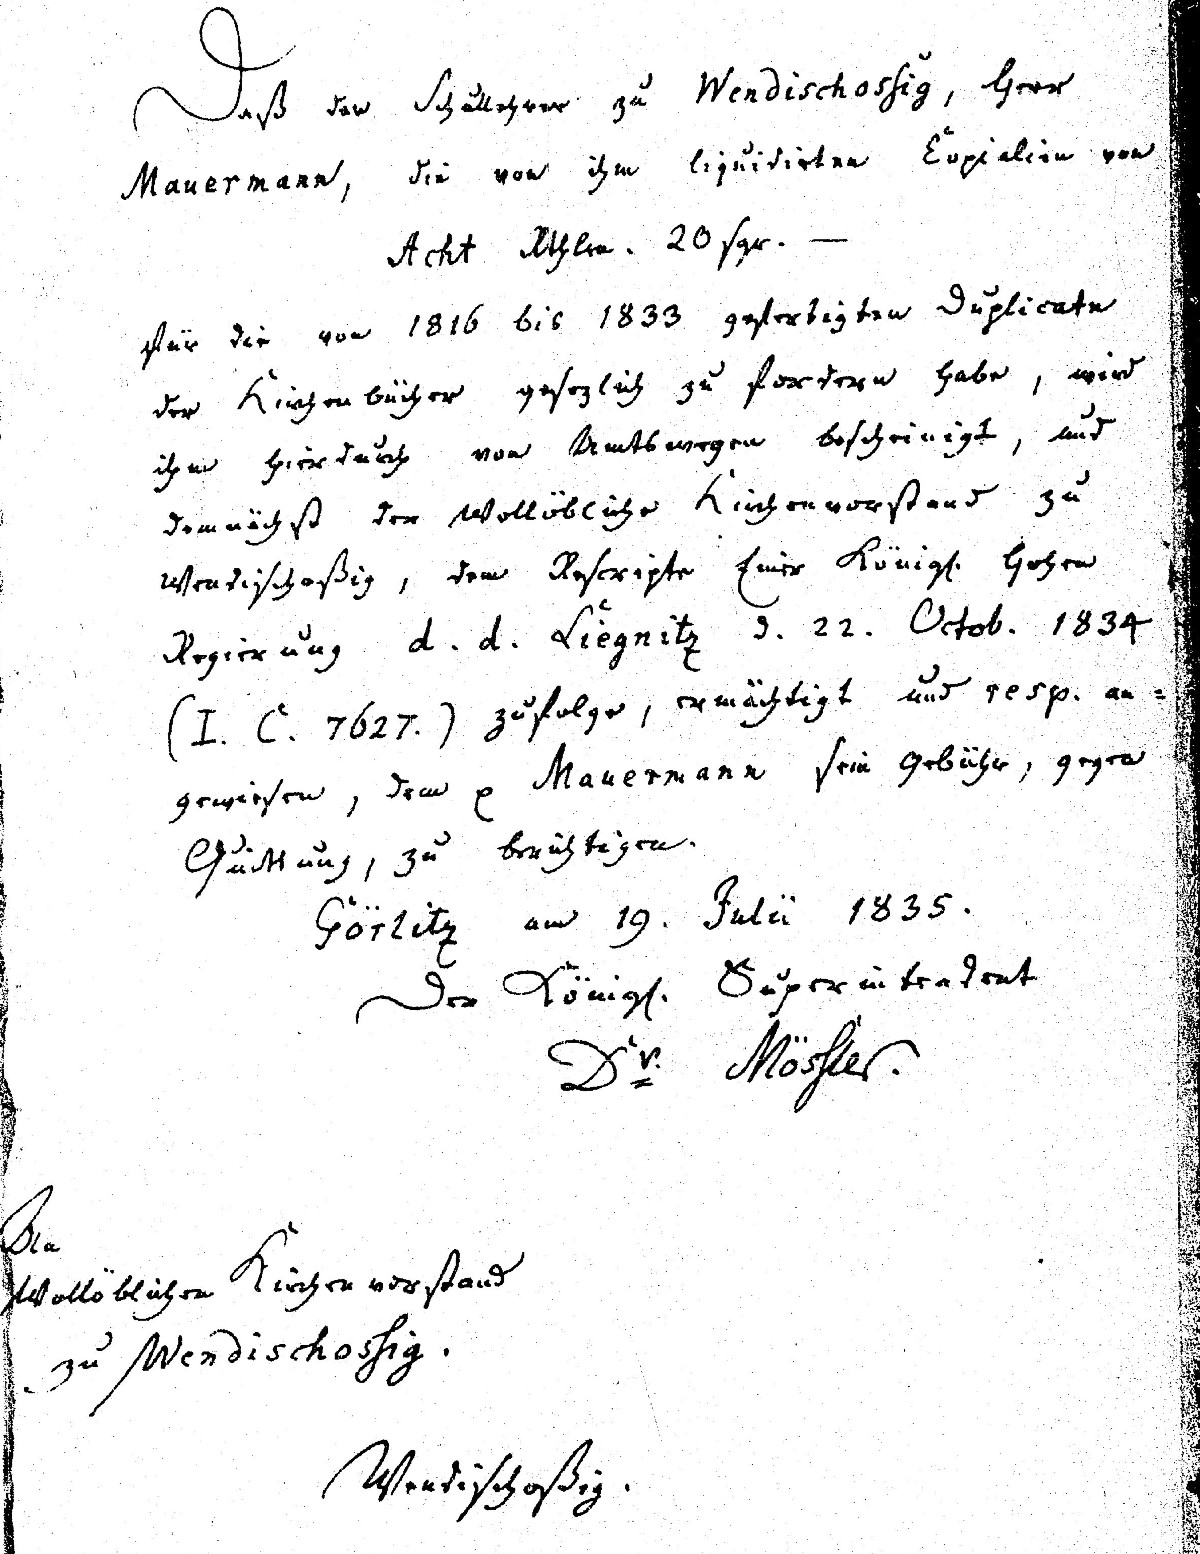 Daß der Schullehrer zu Wendischossig, Herr
Mauermann, die von ihm liquidirten Copialien von
Acht Rthlrn. 20 sgr. —
für die von 1816 bis 1833 gefertigten Duplicate
der Kirchenbücher gesezlich zu fordern habe, wird
ihm hierdurch von Amtswegen bescheinigt, und
demnächst der Wollöbliche Kirchenvorstand zu
Wendischoßig, dem Rescripte Einer Königl. Hohen
Regierung d. d. Liegnitz d. 22. Octob. 1834
(I. C. 7627.) zufolge, ermächtigt und resp. an=
gewiesen, dem p Mauermann sein Gebühr, gegen
Quittung, zu berichtigen.
Görlitz am 19. Julii 1835.
Der Königl. Superintendent
Dr. Mössler.
Wollöblichen Kirchenvorstand
zu Wendischossig.
Wendischoßig.